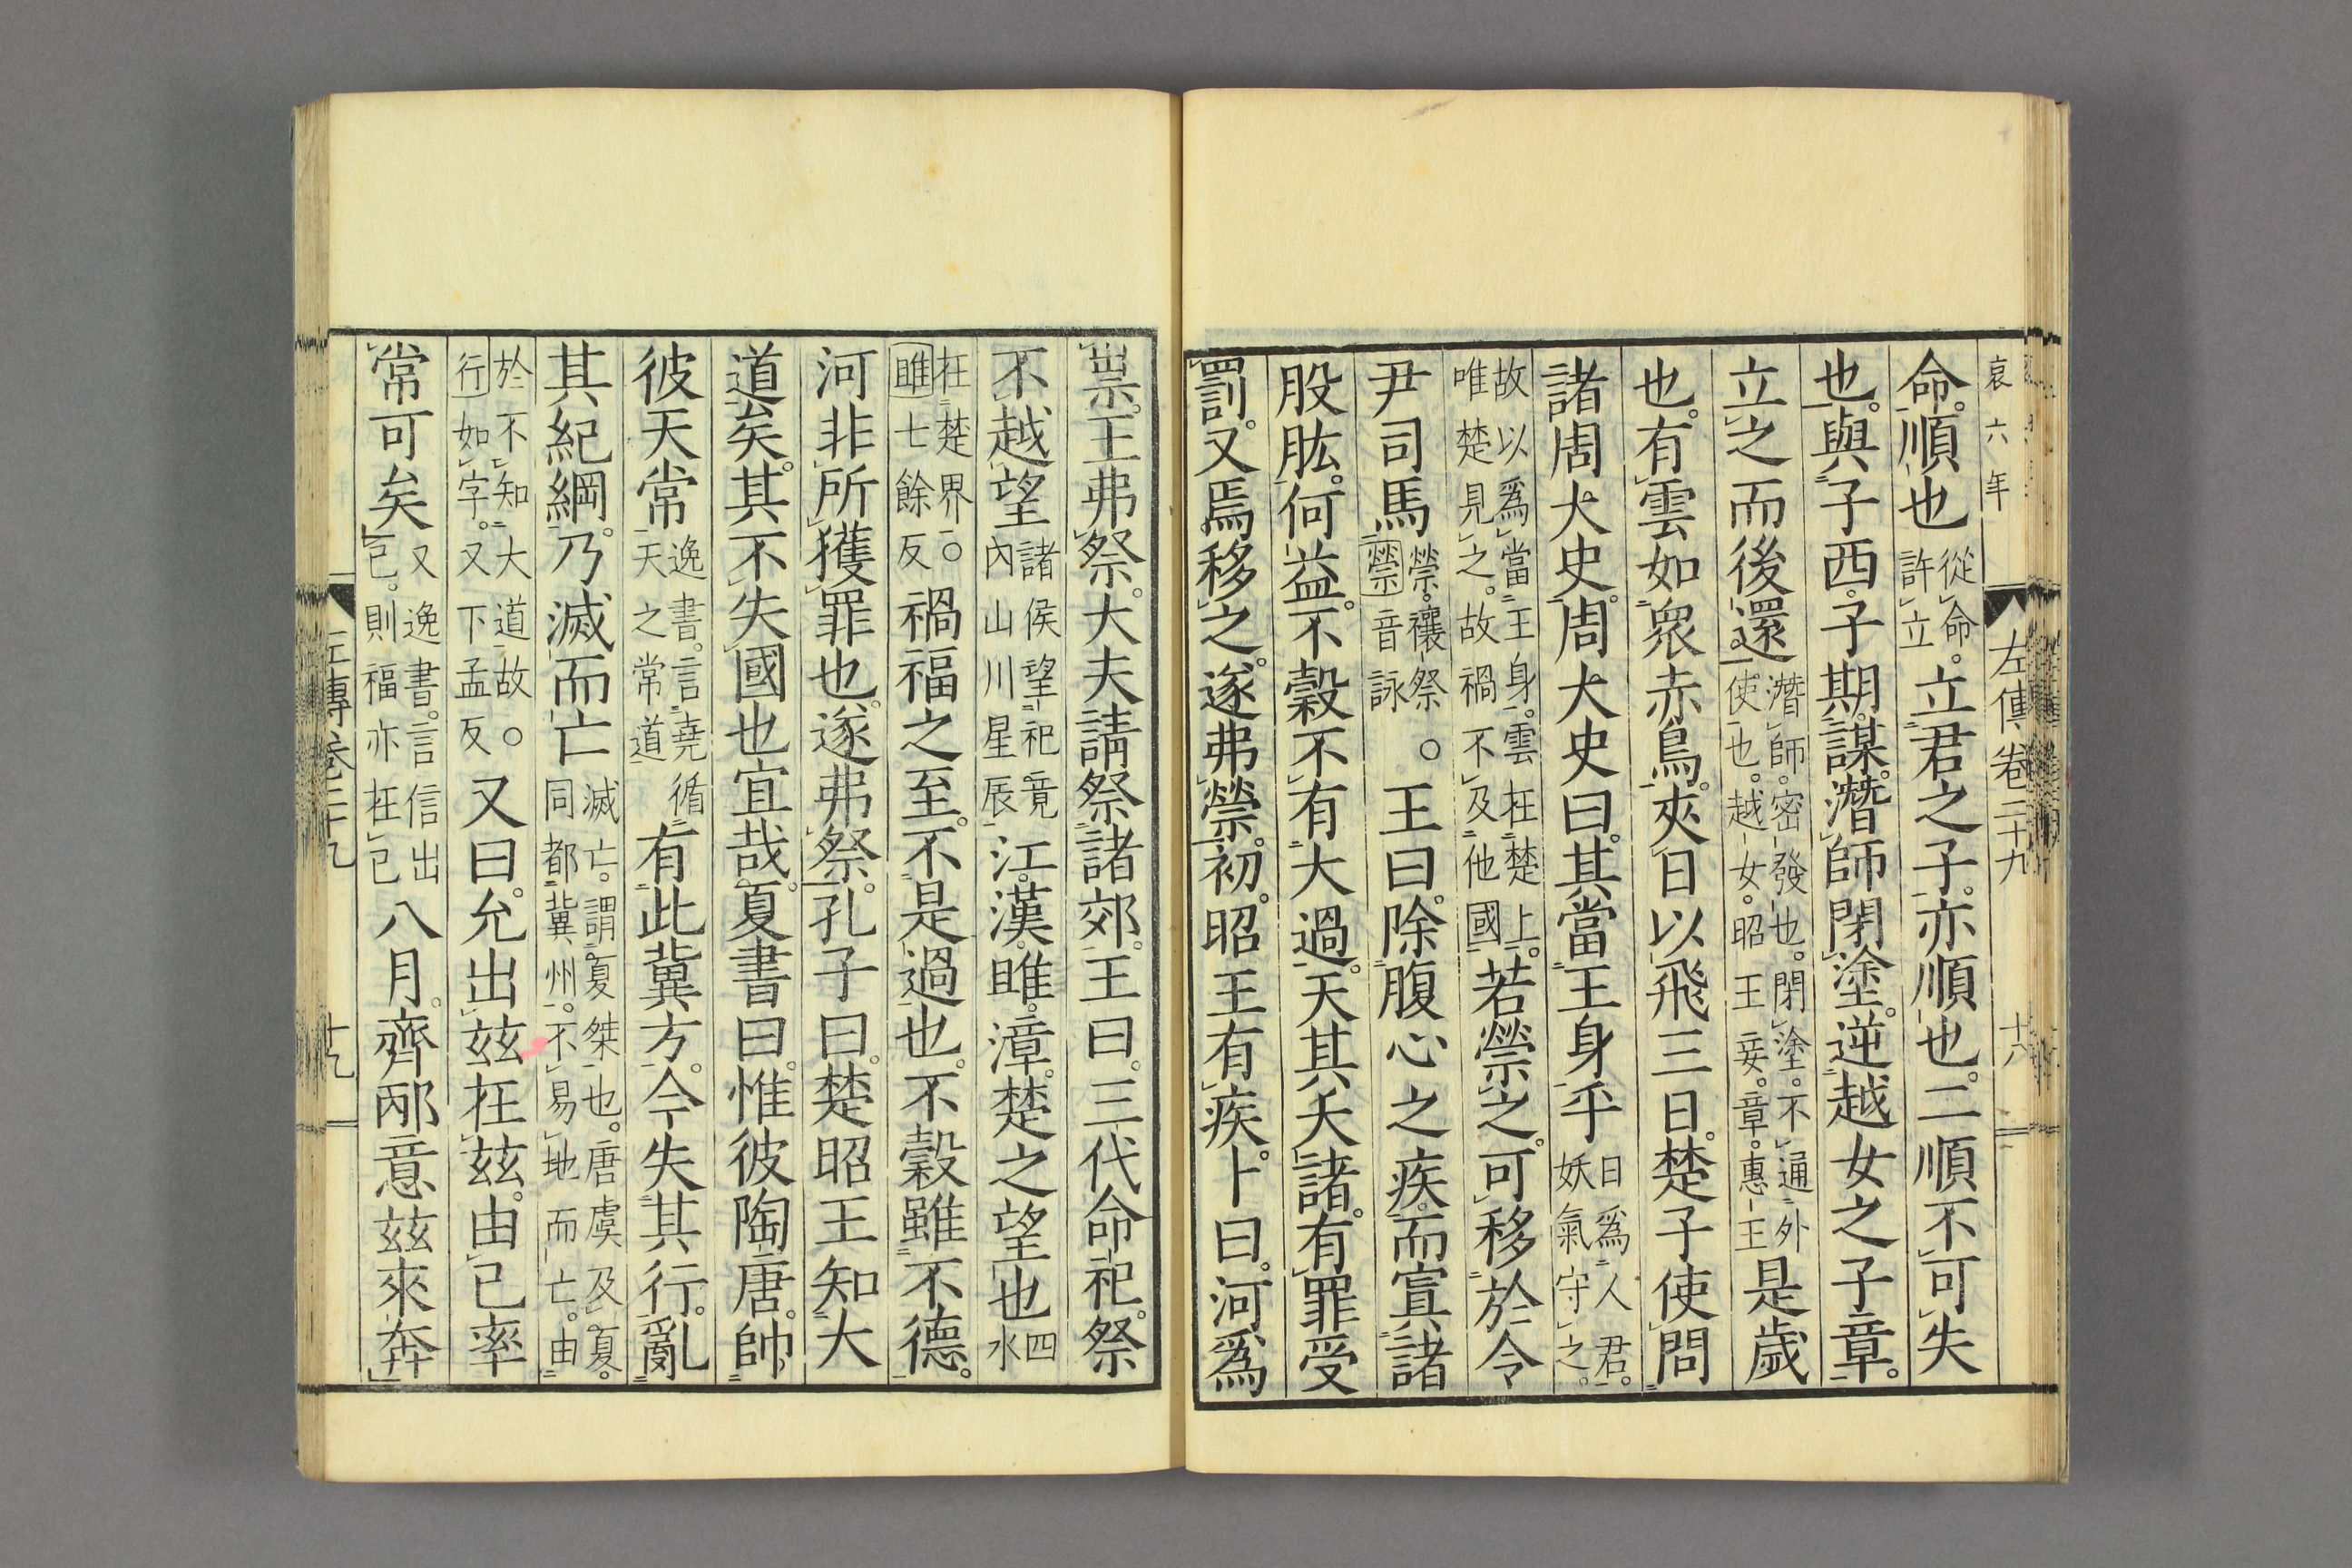 哀六年
左傳卷二十九
十八
命。順也從命。許立立君之子。亦順也。二順不可失
也。與子西。子期謀。潛師閉塗。逆越女之子章。
立之而後還。潛師。密發也。閉塗。不通外使也。越女。昭王妾。章。惠王是歲
也。有雲如衆赤鳥。夾日以飛三日。楚子使問
諸周大史。周大史曰。其當王身乎日爲人君。妖氣守之。
故以爲當王身。雲在楚上。唯楚見之。故禍不及他國若禜之。可移於令
尹司馬禜。禳祭。禜音詠○王曰。除腹心之疾。而寘諸
股肱。何益。不穀不有大過。天其夭諸。有罪受
罰。又焉移之。遂弗禜。初。昭王有疾。卜曰。河爲
祟。王弗祭。大夫請祭諸郊。王曰。三代命祀。祭
不越望諸侯望祀竟內山川星辰江。漢。雎。漳。楚之望也四水
在楚界○雎七餘反禍福之至。不是過也。不穀雖不德。
河非所獲罪也。遂弗祭。孔子曰。楚昭王知大
道矣。其不失國也宜哉。夏書曰。惟彼陶唐。帥
彼天常逸書。言堯循天之常道有此冀方。今失其行。亂
其紀綱。乃滅而亡滅亡。謂夏桀也。唐虞及夏。同都冀州。不易地而亡。由
於不知大道故。○行如字。又下孟反又曰。允出玆在玆。由己率
常可矣又逸書。言信出己。則福亦在己八月。齊邴意玆來奔